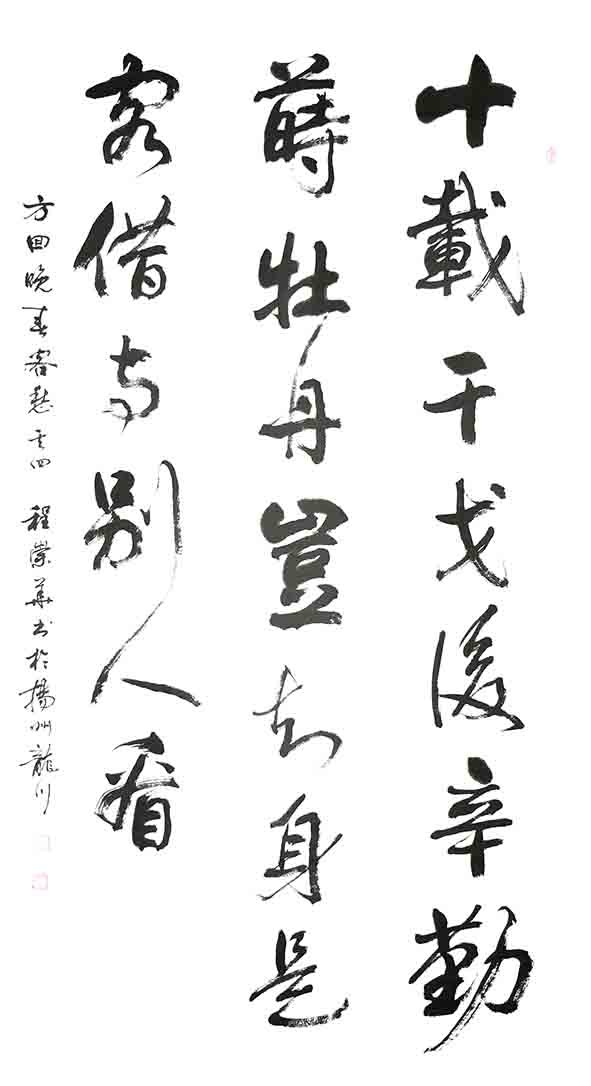 十載干戈後辛勤
蒔牡丹豈知身是
客借与别人看
方回晚春客愁其四 程崇華书於揚州龍川